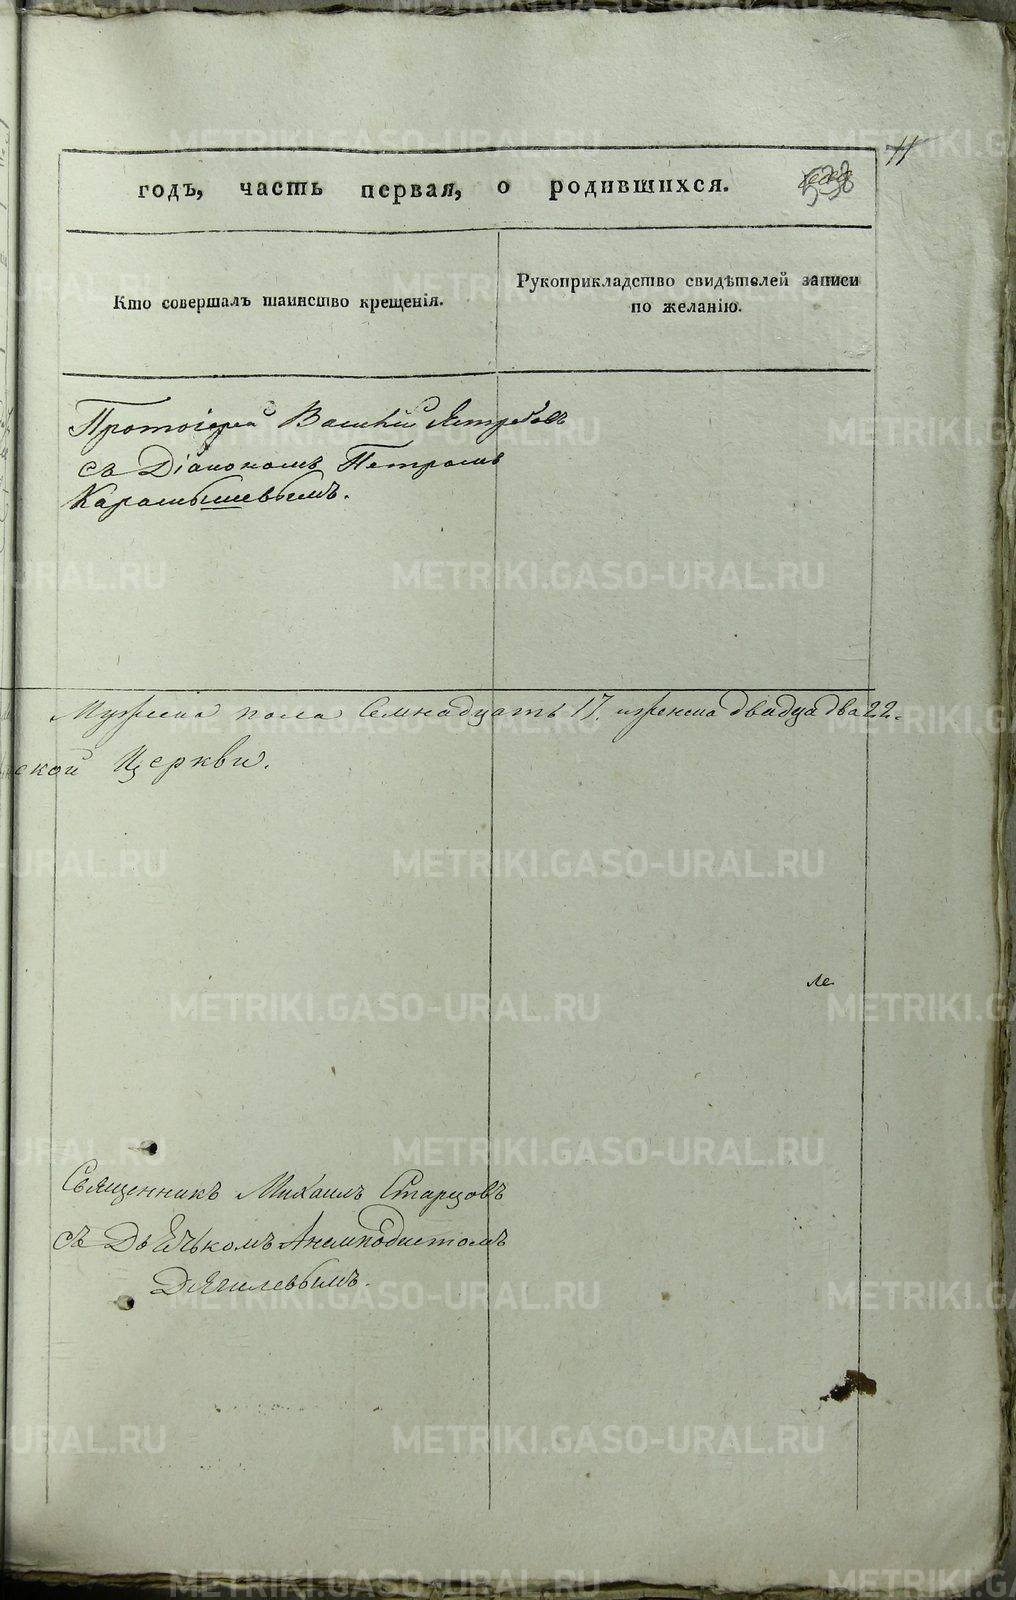 11
годъ, часть первая, о родившихся.
Кто совершалъ таинство крещенія.
Рукоприкладство свидѣтелей записи
по желанію.
Протоіерей Василій Ястребовъ
съ Діакономъ Петромъ
Карамышевымъ.
Мужеска пола Семнадцать 17. и женска двадца два 22.
ской Церкви.
ле
Священникъ Михаилъ Старцовъ
съ Дьячькомъ Анемподистомъ
Дягилевымъ.
METRIKI.GASO-URAL.RU